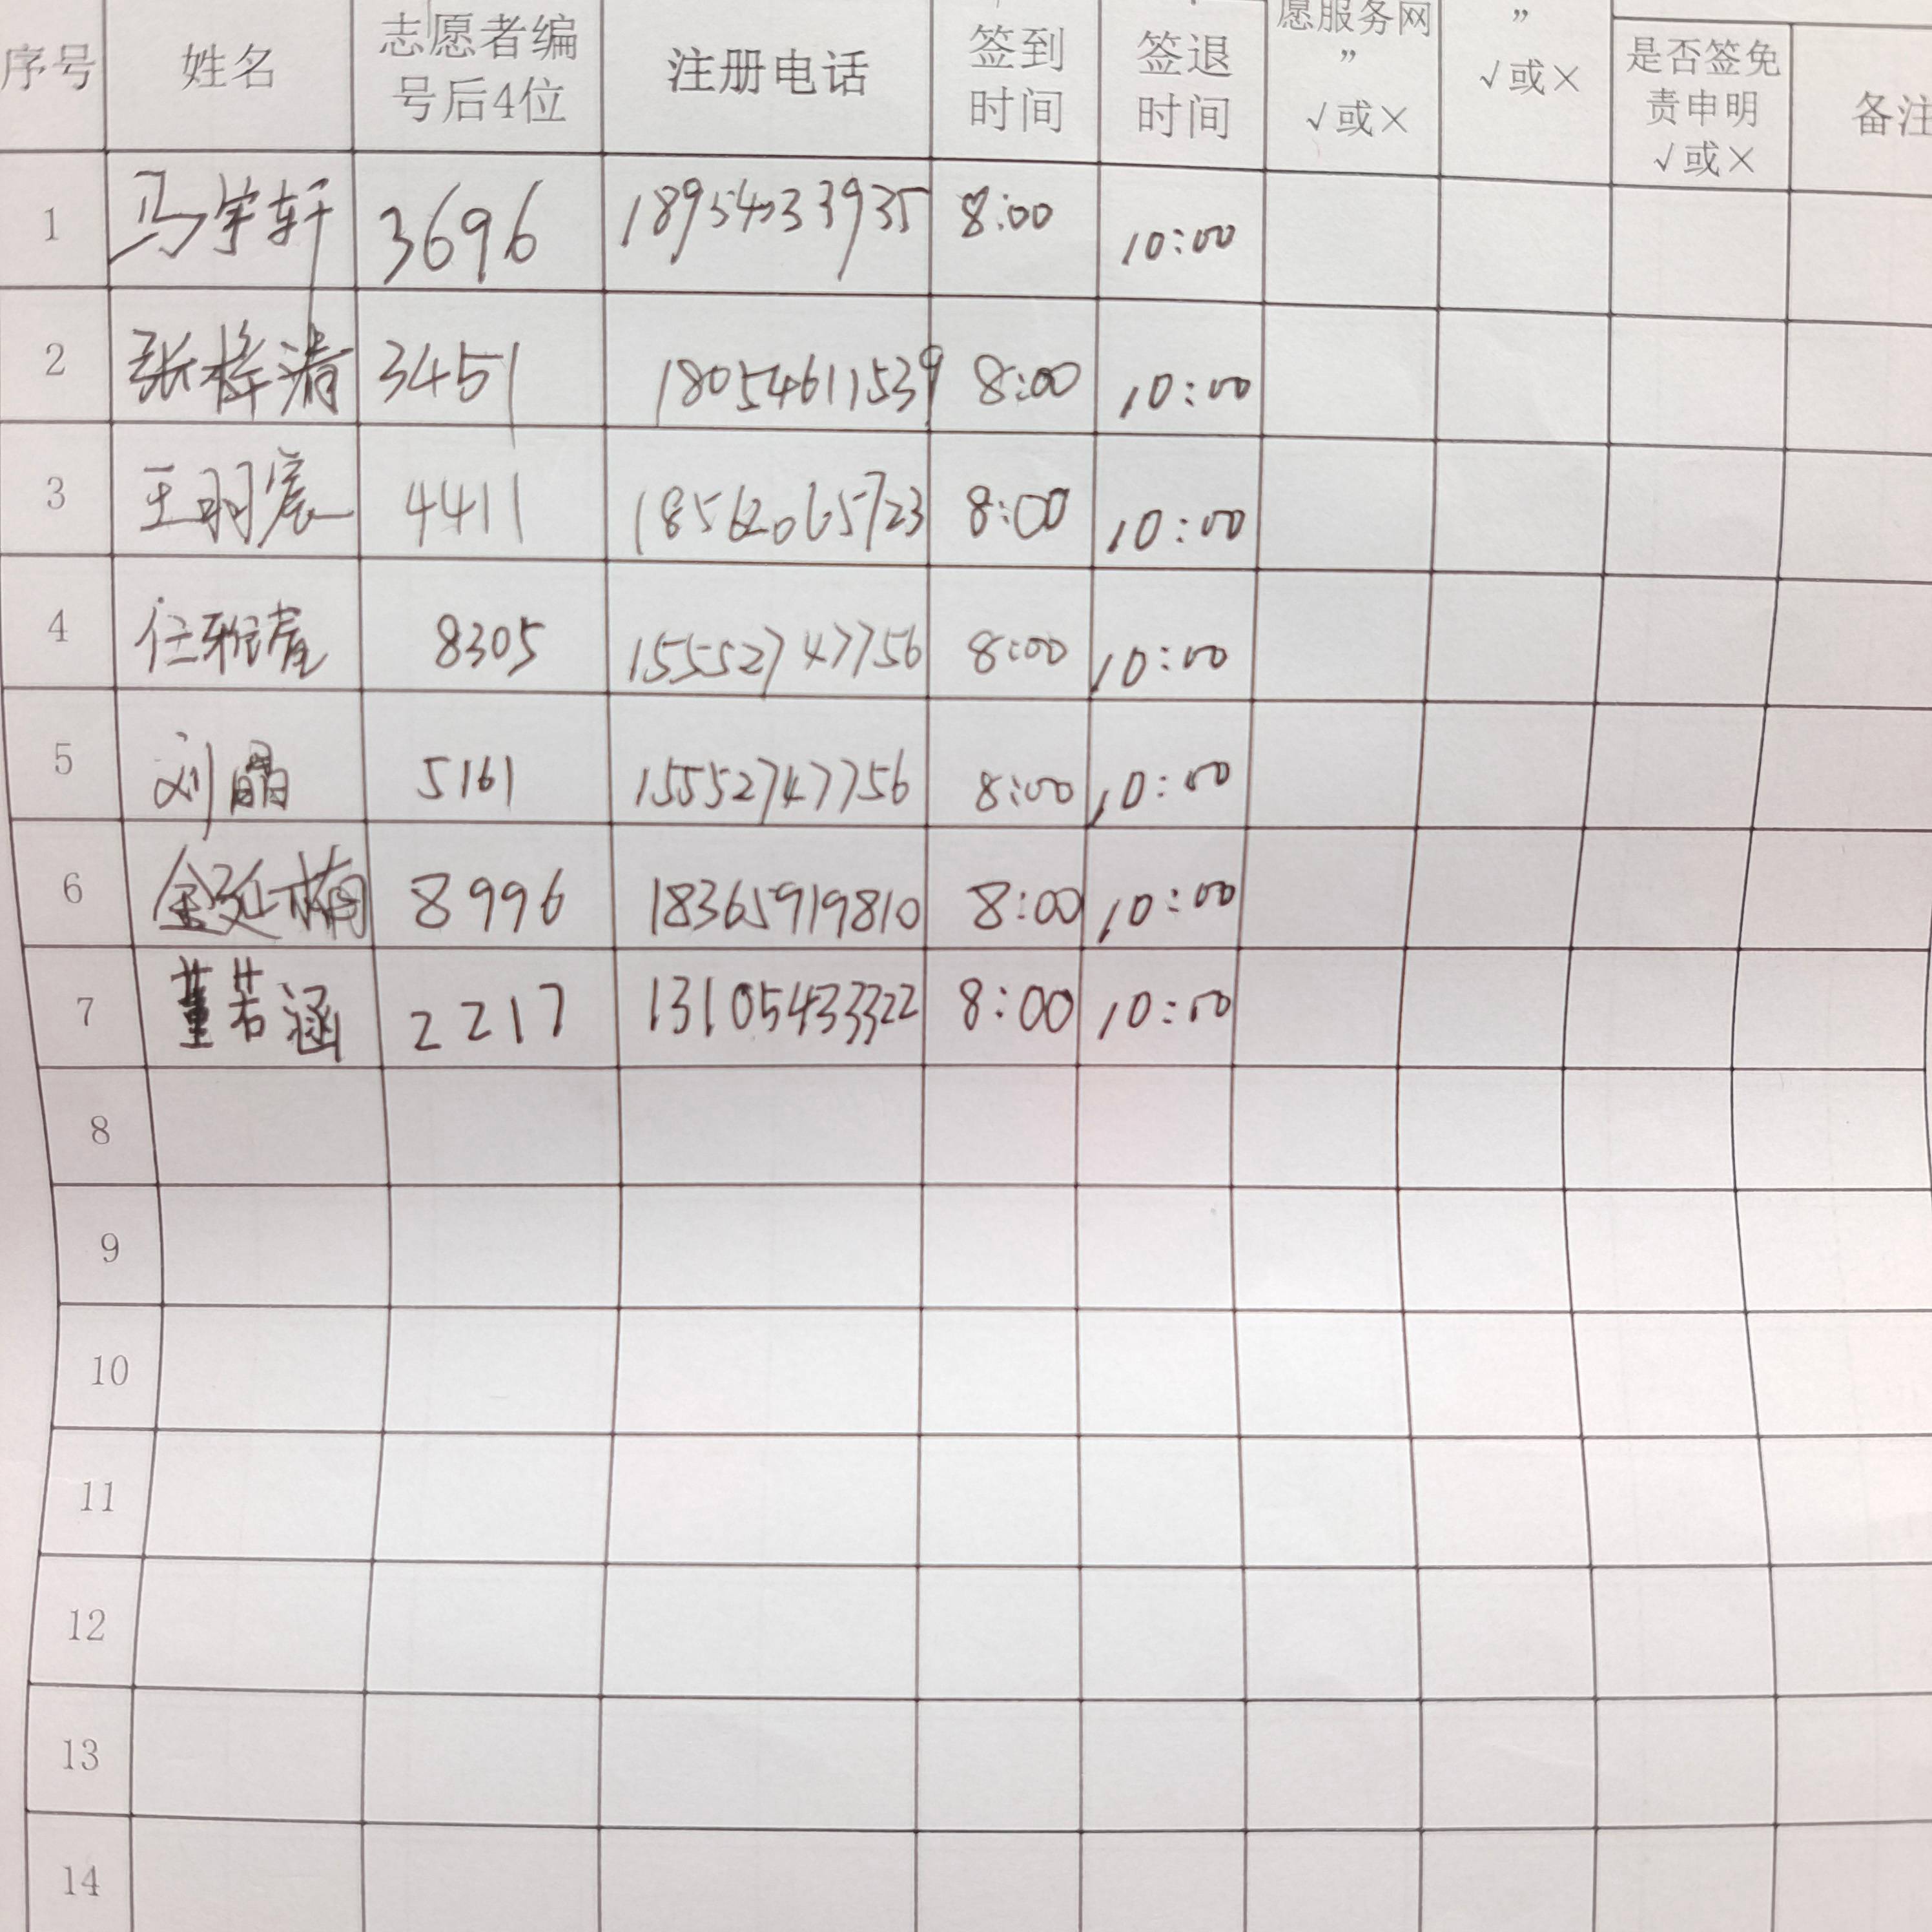 序号 姓名 志愿者编号后4位 注册电话 签到时间 签退时间 愿服务网” √或× ” √或× 是否签免责申明 √或× 备注
1 马宇轩 3696 8:00 10:00
2 张梓清 3451 18054611539 8:00 10:00
3 王羽宸 4411 18562065723 8:00 10:00
4 任雅 8305 15552747756 8:00 10:00
5 刘晶 5161 15552747756 8:00 10:00
6 金延楠 8996 18365919810 8:00 10:00
7 董若涵 2217 13105433322 8:00 10:00
8
9
10
11
12
13
14